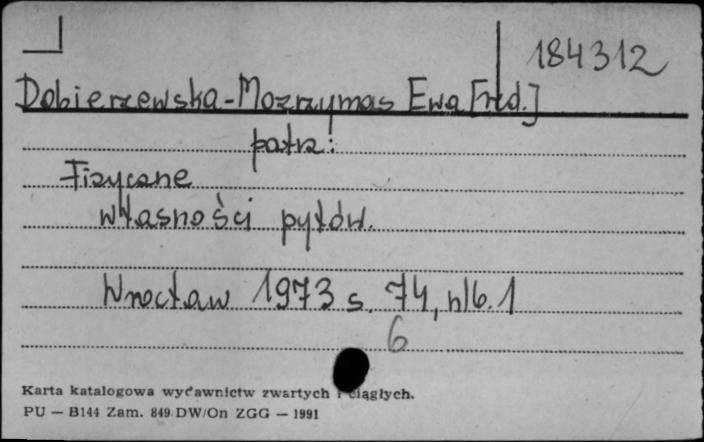 184312
Dobierzewska-Mozrzymas Ewa [red.]
patrz:
Fizyczne
własności pyłów.
Wrocław 1973 s. 74, nlb. 1
6
Karta katalogowa wydawnictw zwartych i ciągłych.
PU — B144 Zam. 849 DW/On ZGG — 1991